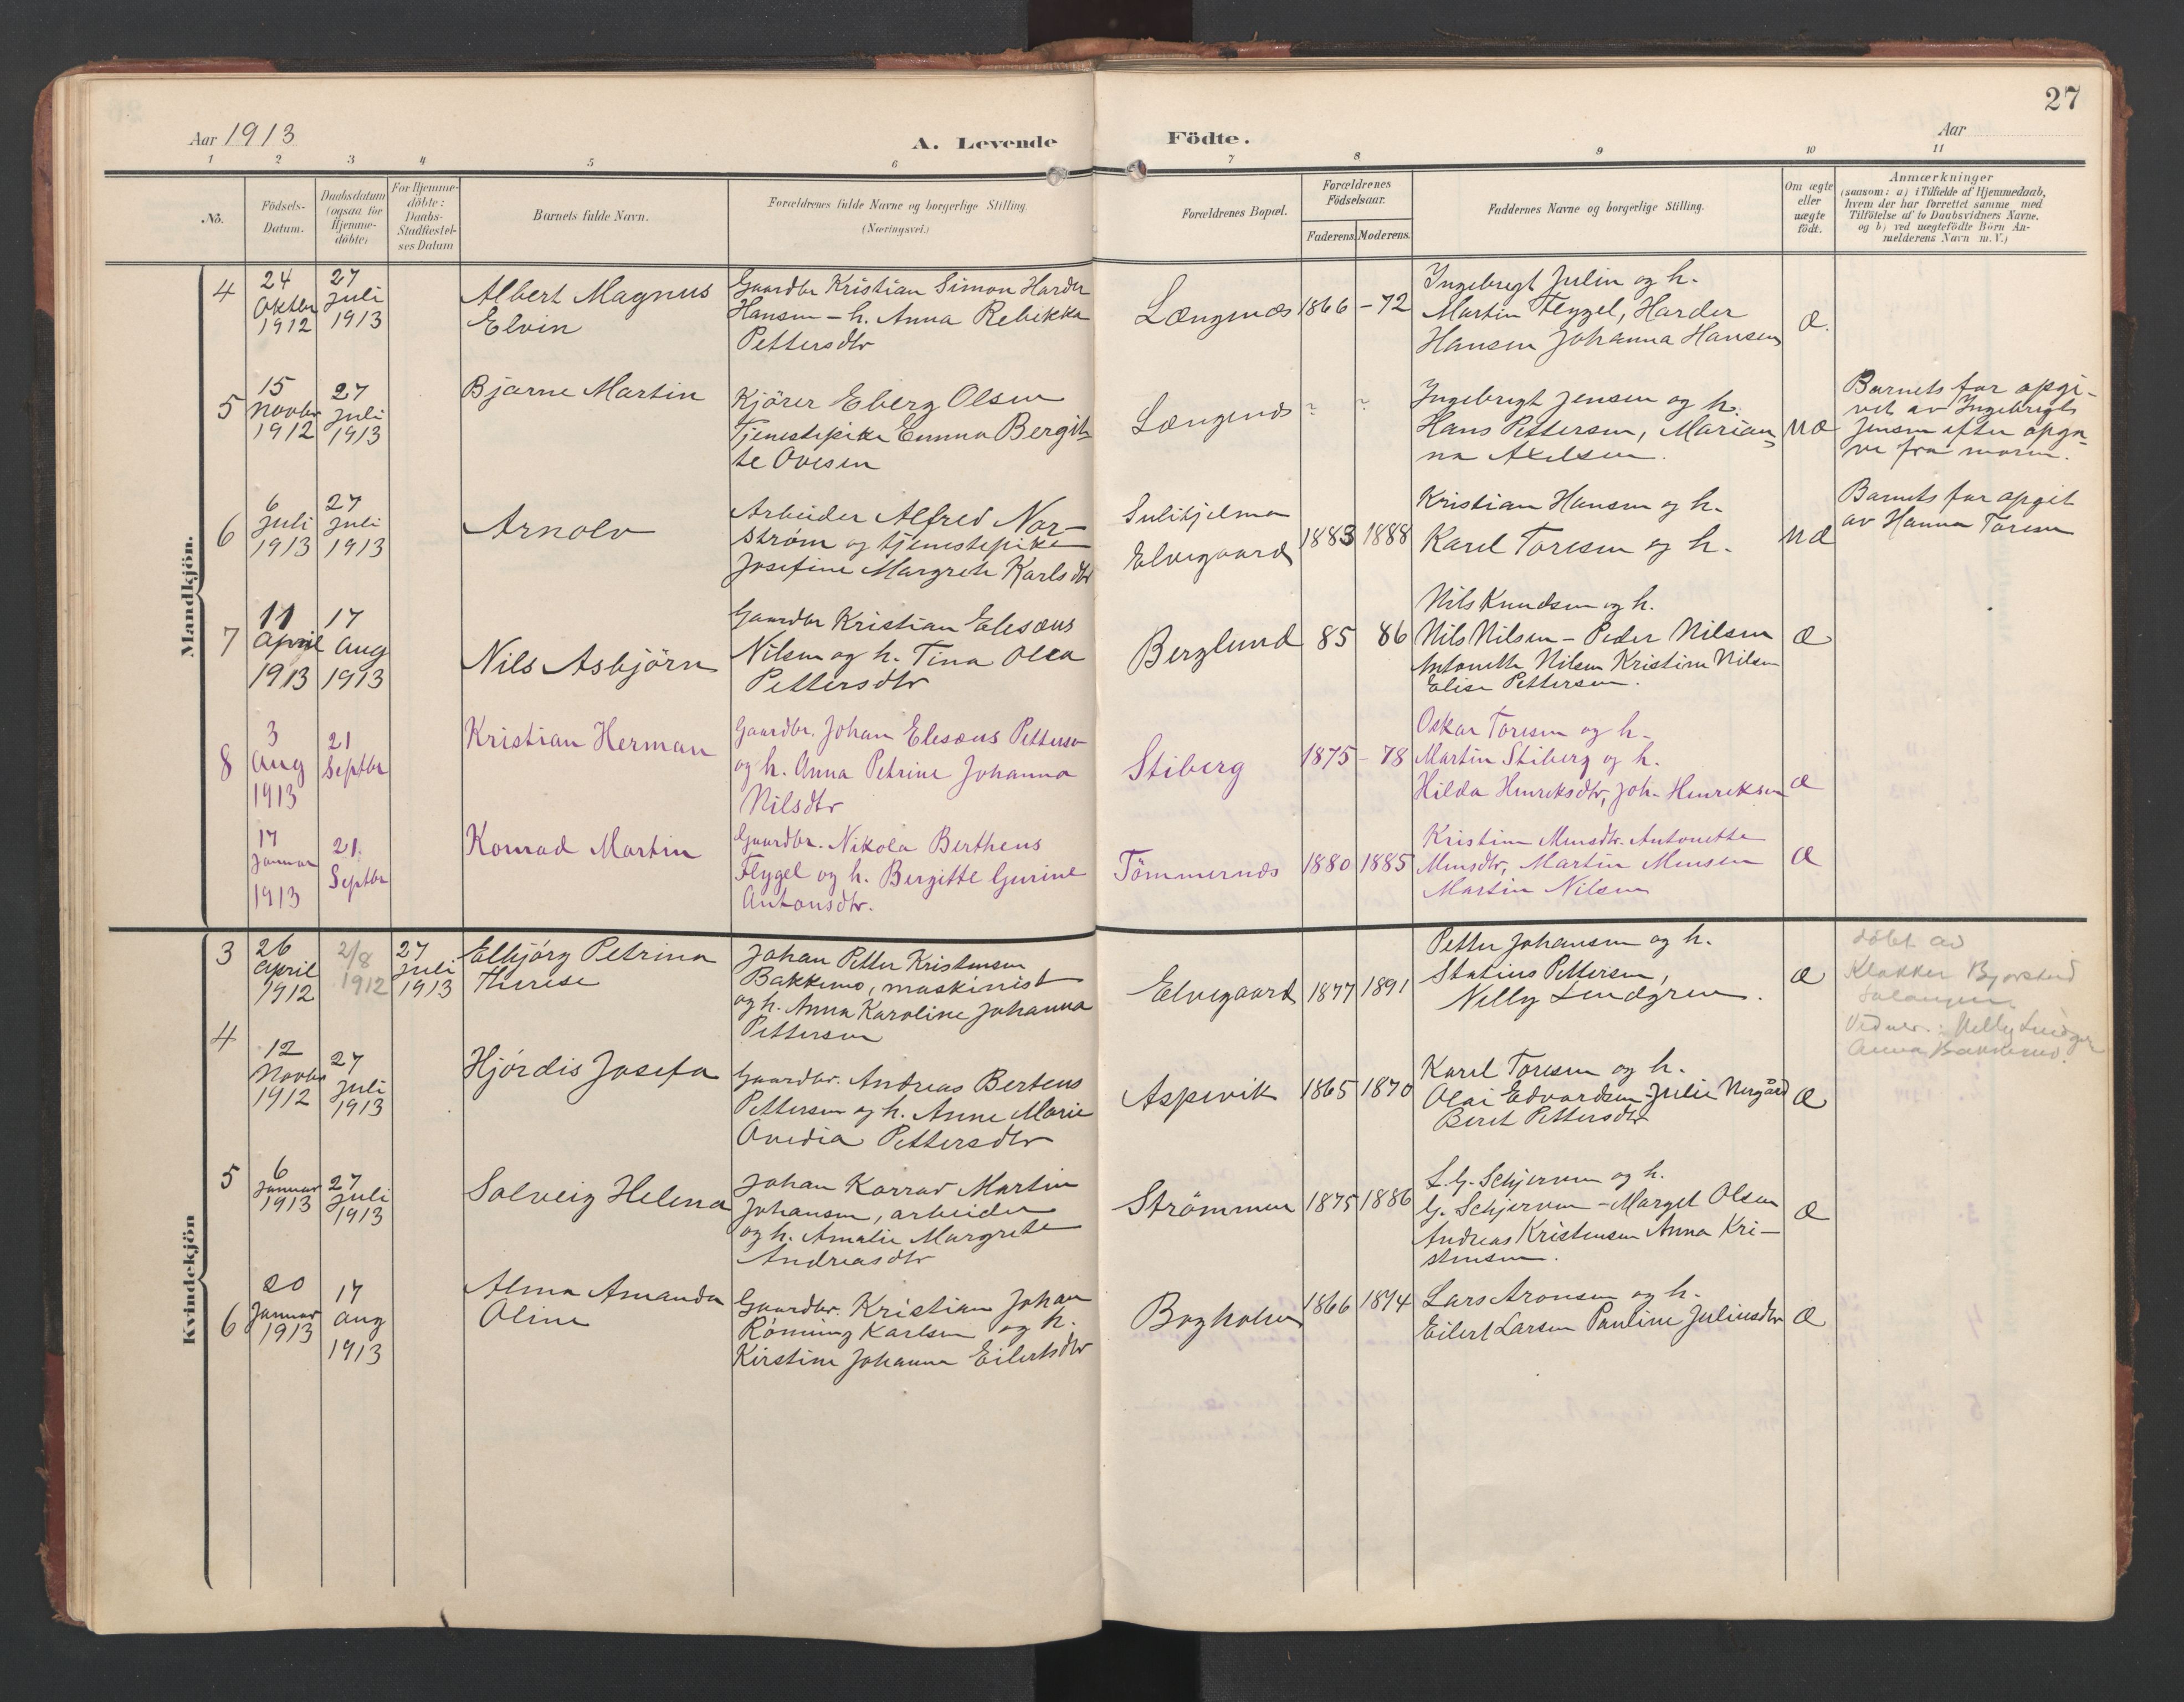 27
Aar 1913
A. Levende
Födte.
Aar
1 2 3 4 5 6 7 8 9 10 11
No.
Födsels-
Datum.
Daabsdatum
(ogsaa for
Hjemme-
döbte)
For Hjemme-
döbte:
Daabs-
Stadfæstel-
ses Datum
Barnets fulde Navn.
Forældrenes fulde Navne og borgerlige Stilling
(Næringsvei.)
Forældrenes Bopæl.
Forældrenes
Födselsaar.
Faderens. Moderens.
Faddernes Navne og borgerlige Stilling.
Om ægte
eller
uægte
födt.
Anmærkninger
(saasom: a) i Tilfælde af Hjemmedaab,
hvem der har forrettet samme med
Tilföielse af to Daabsvidners Navne,
og b) ved uægtefödte Börn An-
melderens Navn m. V.)
Mandkjön.
4
24
Oktbr
1912
27
Juli
1913
Albert Magnus
Elvin
Gaardbr Kristian Simon Harder
Hansen - h. Anna Rebekka
Pettersdtr
Længenæs
1866 - 72
Ingebrigt Julin og h.
Martin Flygel, Harder
Hansen Johanna Hansen
Æ.
5
15
Novbr
1912
27
Juli
1913
Bjarne Martin
Kjörer Eberg Olsen
Tjenestepike Emma Bergit-
te Ovesen
Længenæs
? ?
Ingebrigt Jensen og h.
Hans Pettersen, Marian-
na Axelsen.
UÆ
Barnets far opgi-
vet av Ingebrigt
Jensen efter opga-
ve fra moren.
6
6
Juli
1913
27
Juli
1913
Arnolv
Arbeider Alfred Nor-
strøm og tjenestepike
Josefine Margrete Karlsdtr
Sulitjelma
Elvegaard
1883 1888
Kristian Hansen og h.
Karel Toresen og h.
UÆ
Barnets far opgit
av Hanna Toresen
7
11
April
1913
17
Aug
1913
Nils Asbjörn
Gaardbr Kristian Elesæus
Nilsen og h. Tina Olea
Pettersdtr
Berglund
85 86
Nils Knudsen og h.
Nils Nilsen - Peder Nilsen
Antonette Nilsen Kristine Nilsen
Elise Pettersen.
Æ
8
3
Aug
1913
21
Septbr
Kristian Herman
Gaardbr. Johan Elesæus Petterse
og h. Anna Petrine Johanna
Nilsdtr
Stiberg
1875 - 78
Oskar Toresen og h.
Martin Stiberg og h.
Hilda Henriksdtr, Joh. Henriksen
Æ
17
Januar
1913
21
Septbr
Konrad Martin
Gaardbr. Nikola Berthens
Flygel og h. Bergitte Gurine
Antonsdtr.
Tömmernæs
1880 1885
Kristine Mensdtr. Antonette
Mensdtr, Martin Mensen
Martin Nilsen
Æ
Kvindekjön
3
26
April
1912
2/8
1912
27
Juli
1913
Elbjörg Petrina
Therese
Johan Petter Kristensen
Bakkemo, maskinist
og h. Anna Karoline Johanna
Pettersen
Elvegaard
1877 1891
Petter Johansen og h.
Statius Pettersen,
Nelly Lindgren.
Æ
döbt av
Klokker Bjorstad
Salangen
Vidner: Nelly Lindgren
Anna Bakkemo.
4
12
Novbr
1912
27
Juli
1913
Hjördis Josefa
Gaardbr. Andreas Bertens
Pettersen og h. Anne Marie
Ovedia Pettersdtr
Aspevik
1865 1870
Karel Toresen og h.
Olai Edvardsen Julie Nergård
Beret Pettersdtr
Æ
5
6
Januar
1913
27
Juli
1913
Solveig Helena
Johan Konrad Martin
Johansen, arbeider
og h. Amalie Margrete
Andreasdtr
Strömmen
1875 1886
L. G. Schjerven og h.
G. Schjerven - Marget Olsen
Andreas Kristensen Anna Kri-
stensen.
Æ
6
20
Januar
1913
17
Aug
1913
Alma Amanda
Oline
Gaardbr. Kristian Johan
Rönning Karlsen og h.
Kirstine Johanna Eilertsdtr
Bogholm
1866 1874
Lars Aronsen og h.
Eilert Larsen Pauline Juliusdtr
Æ